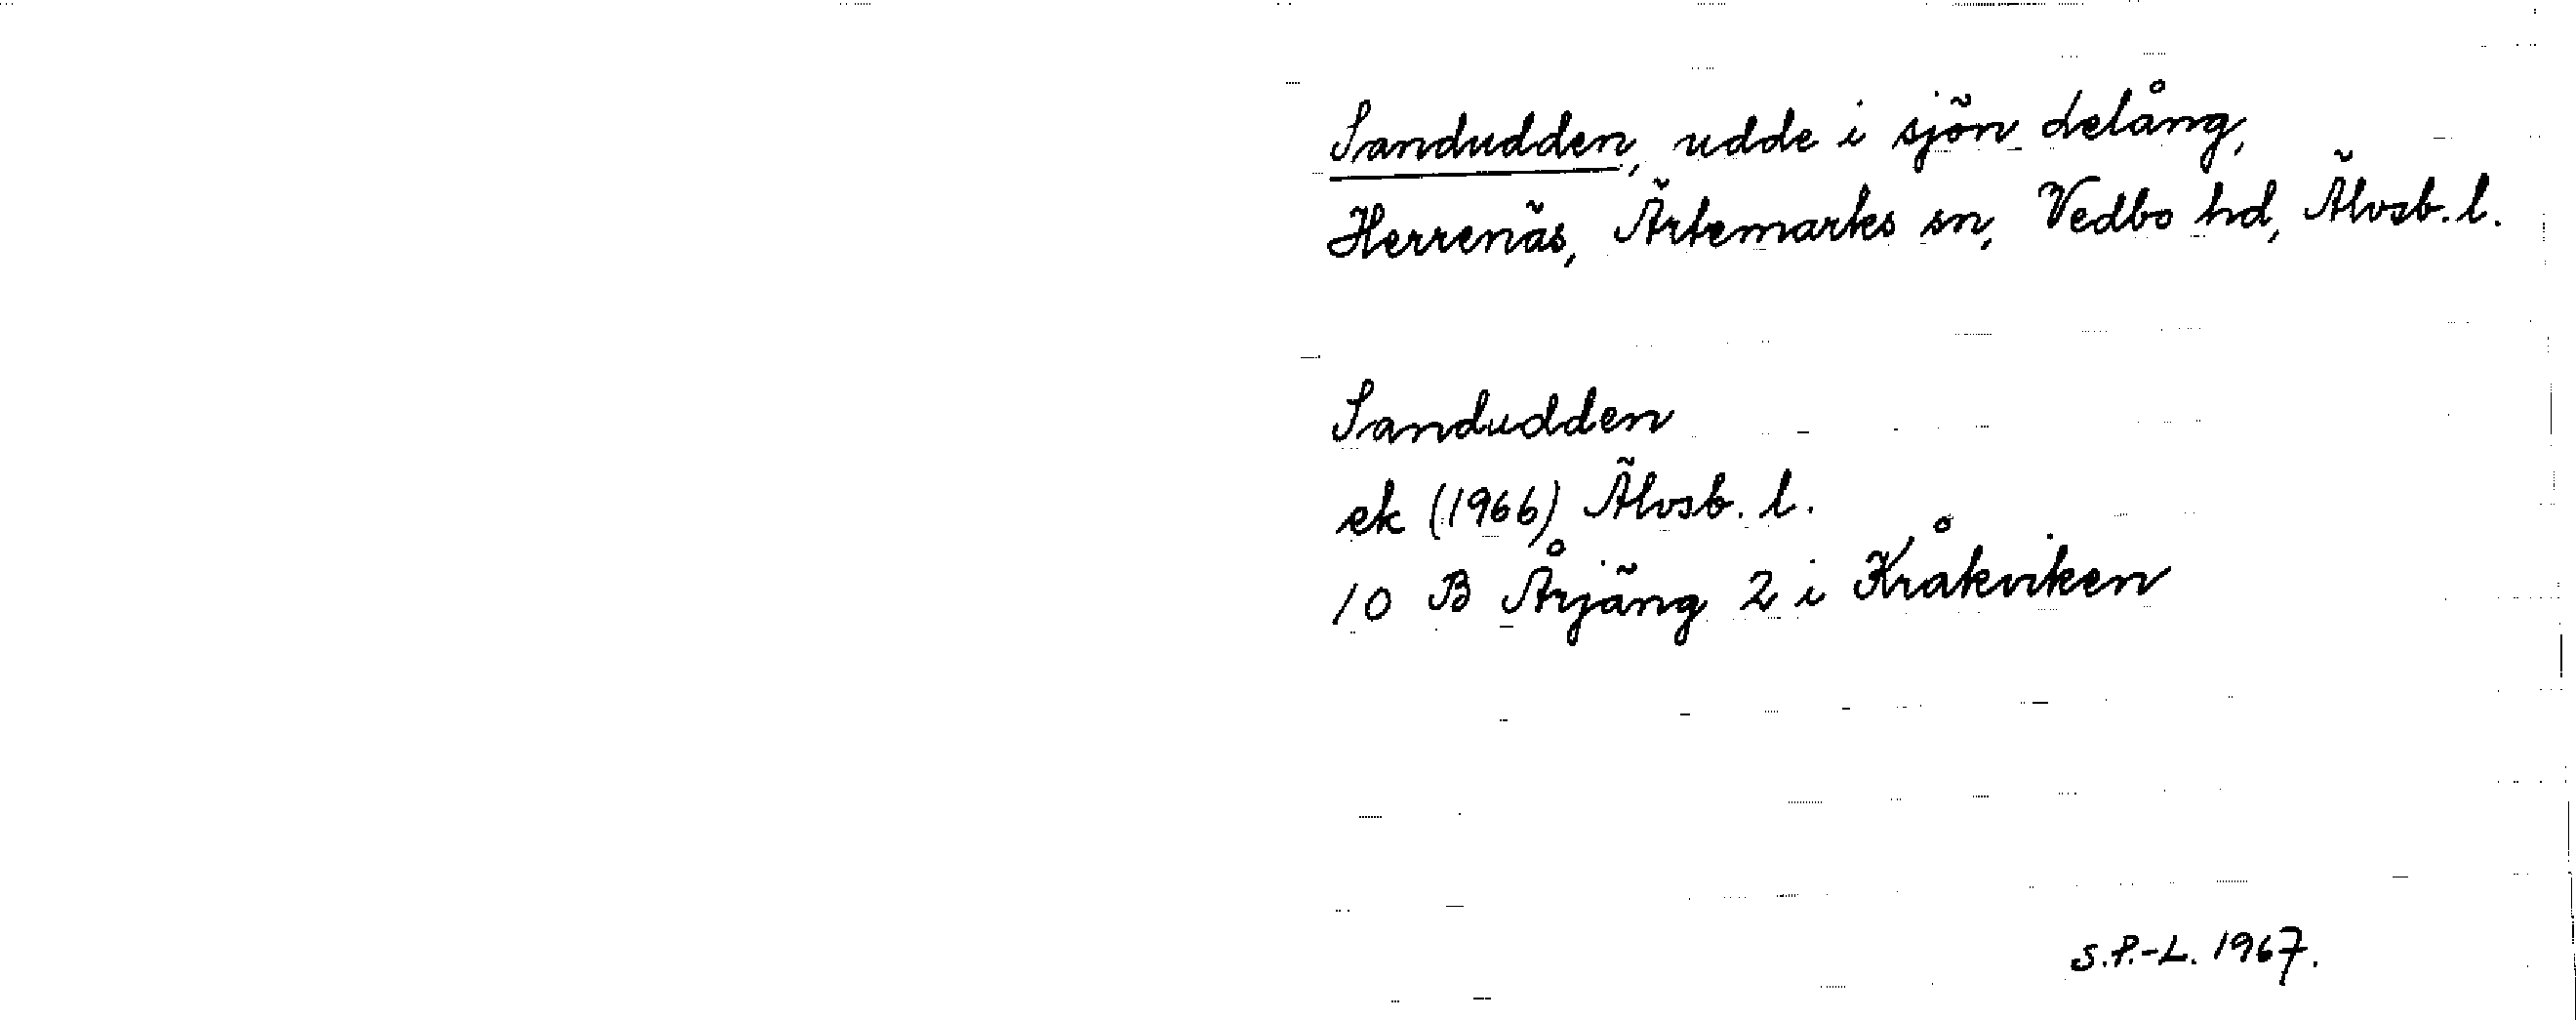 Sandudden, udde i sjön Lelång,
Herrenäs, Ärtemarks sn, Vedbo hd, Älvsb. l.
Sandudden
ek (1966) Älvsb. l.
10 B Årjäng 2 i Kråkviken
S.P.-L. 1967.